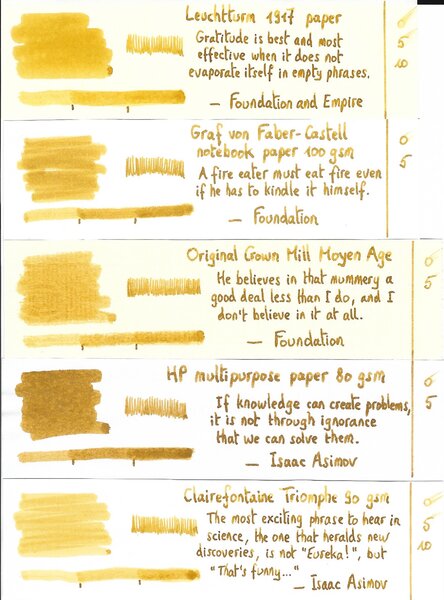 Leuchtturm 1917 paper
Gratitude is best and most
effective when it does not
evaporate itself in empty phrases.
— Foundation and Empire
0
5
10
Graf von Faber-Castell
notebook paper 100 gsm
A fire eater must eat fire even
if he has to kindle it himself.
— Foundation
0
5
Original Crown Mill Moyen Age
He believes in that mummery a
good deal less than I do, and I
don't believe in it at all.
— Foundation
0
5
HP multipurpose paper 80 gsm
If knowledge can create problems,
it is not through ignorance
that we can solve them.
— Isaac Asimov
0
5
Clairefontaine Triomphe 90 gsm
The most exciting phrase to hear in
science, the one that heralds new
discoveries, is not "Eureka!", but
"That's funny..."
— Isaac Asimov
0
5
10